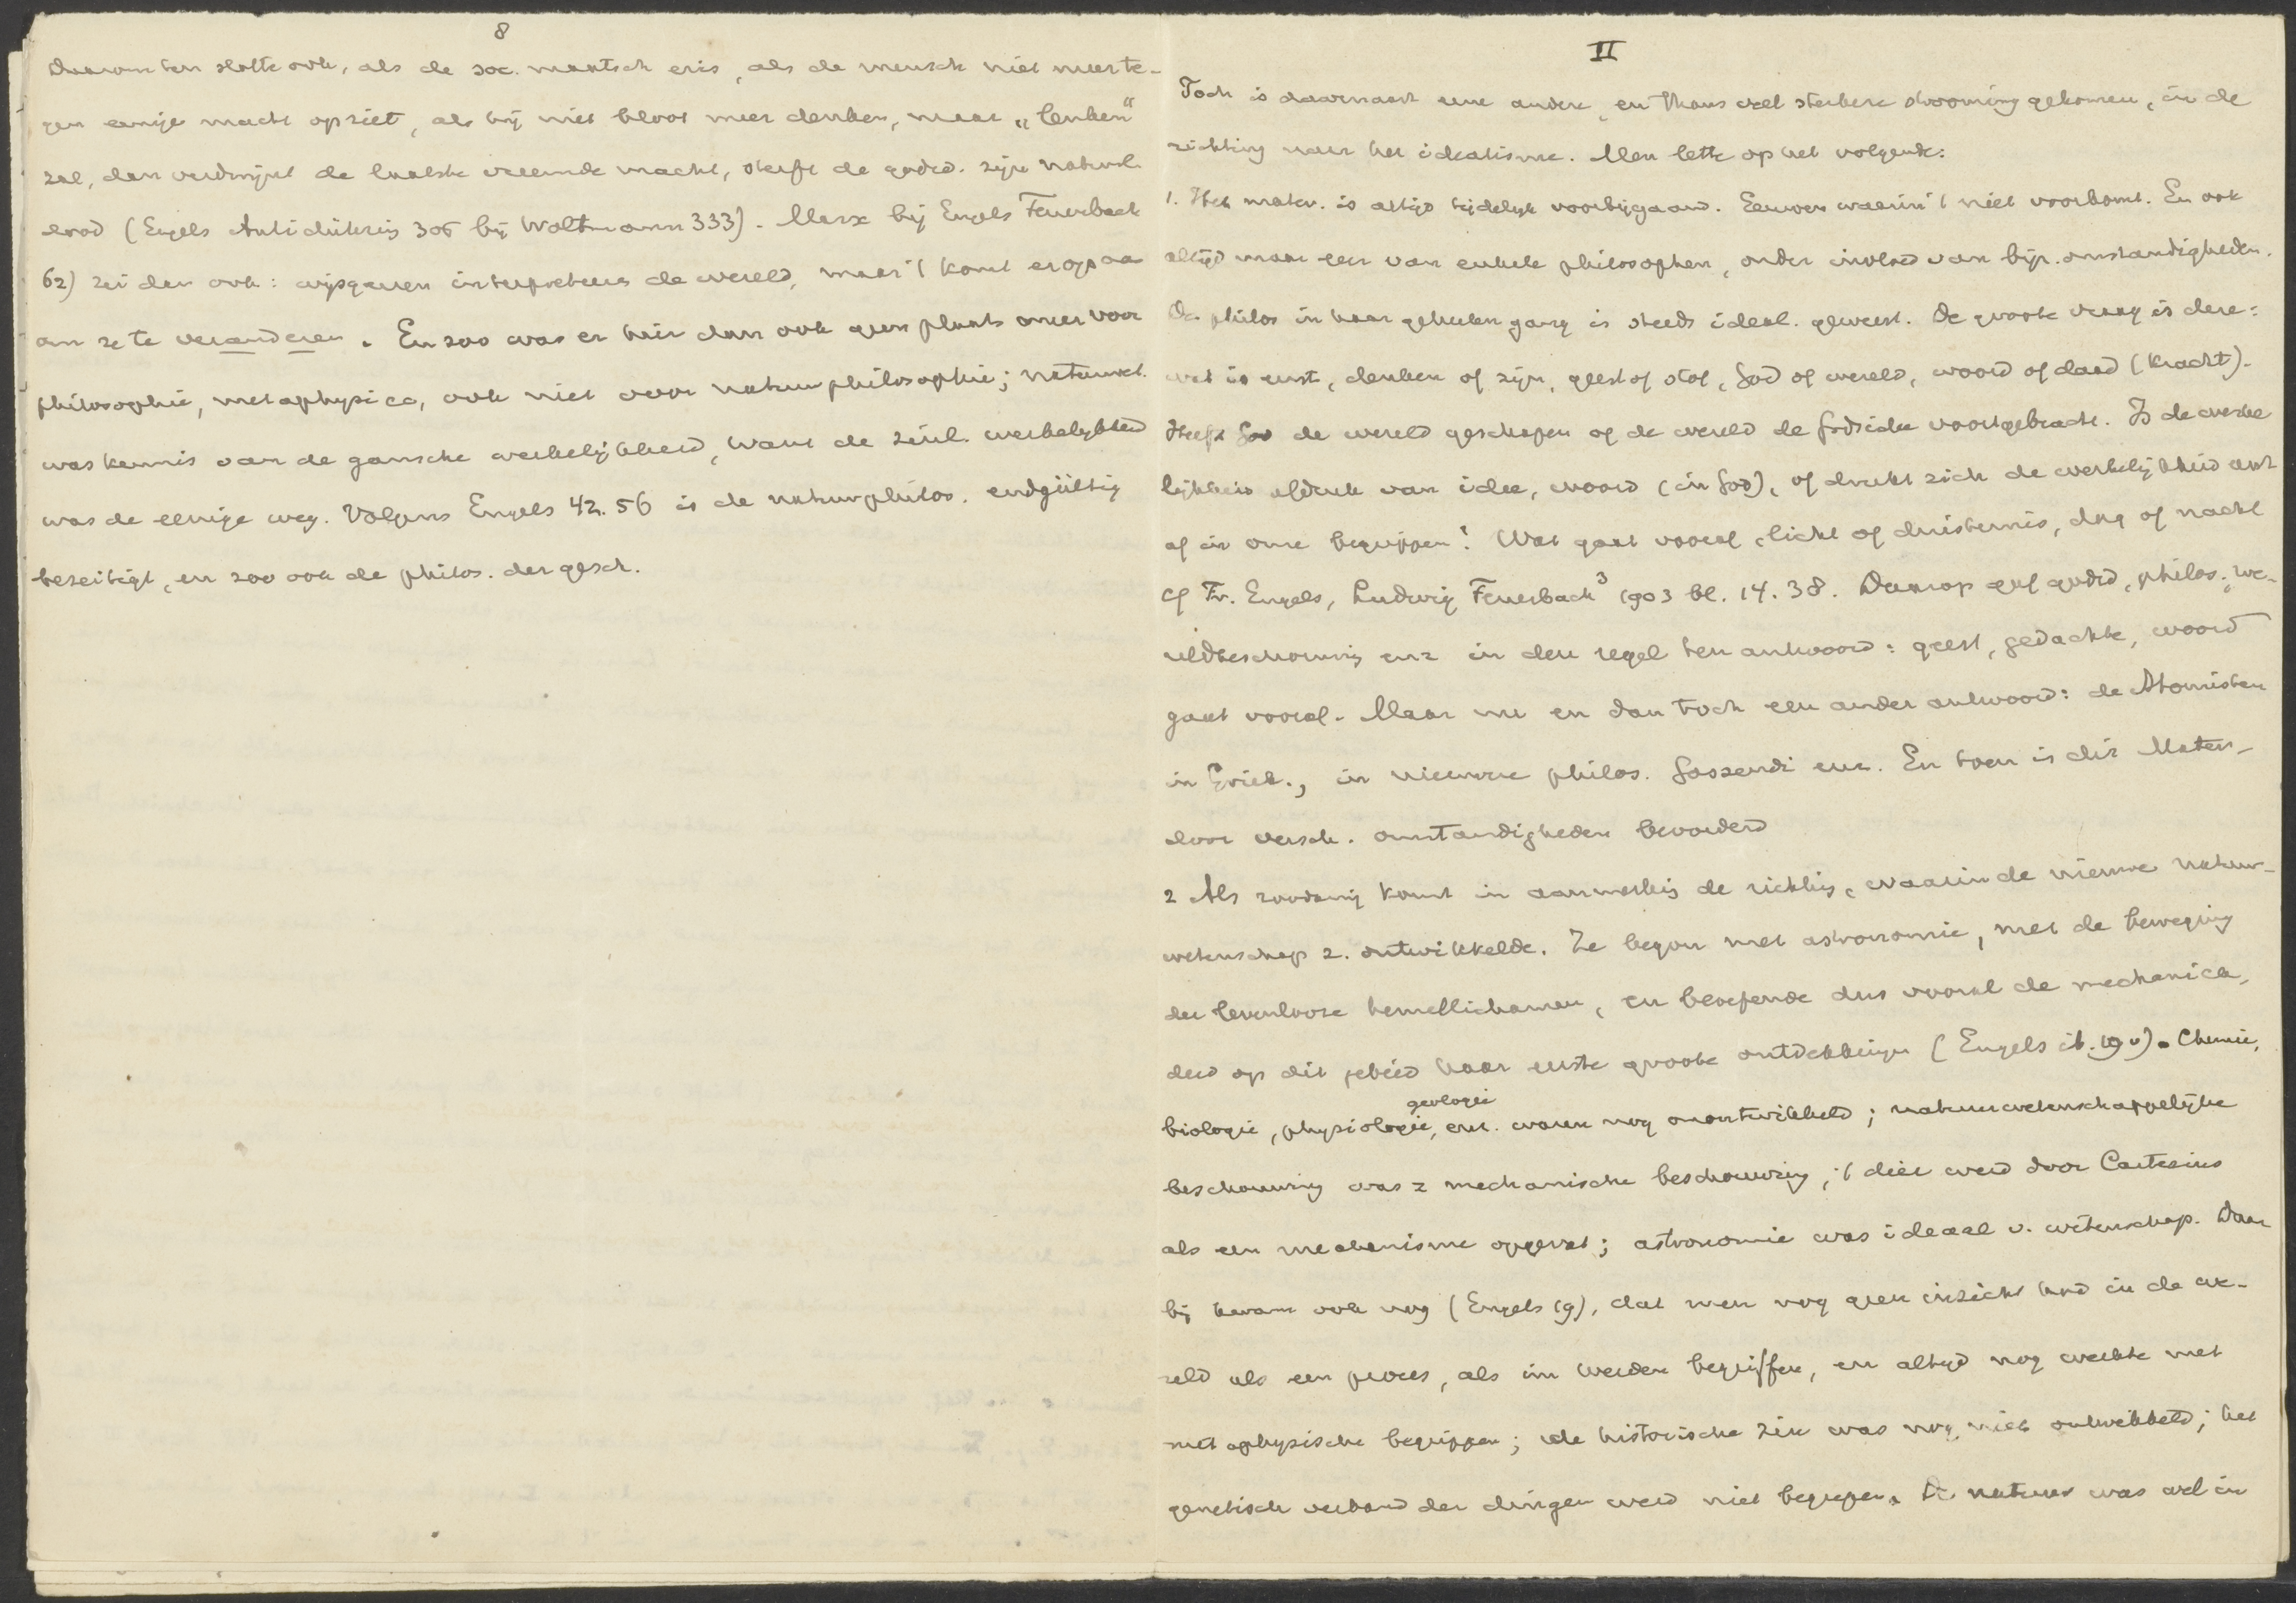 8
Daarom ten slotte ook, als de soc. maatsch er is, als de mensch niet meer te-
gen eenige macht opziet, als hij niet bloot meer denken, maar „lenken"
zal, dan verdwijnt de laatste vreemde macht, sterft de godsd. zijn natuurl.
dood (Engels Antidühring 305 bij Woltmann 333). Marx bij Engels Feuerbach
62) zei dan ook: wijsgeeren interpreteeren de wereld, maar 't komt er op aa
om ze te veranderen. En zoo was er hier dan ook geen plaats meer voor
philosophie, metaphysica, ook niet voor natuurphilosophie; natuurwet.
was kennis van de gansche werkelijkheid, want de zinl. werkelijkheid
was de eenige weg. Volgens Engels 42. 56 is de natuurphilos. endgültig
beseitigt, en zoo ook de philos. der gesch.
II
Toch is daarnaast eene andere, en thans veel sterkere strooming gekomen, in de
richting naar het idealisme. Men lette op het volgende:
1. Het mater. is altijd tijdelijk voorbijgaand. Eeuwen waarin 't niet voorkomt. En ook
altijd maar leer van enkele philosophen, onder invloed van bijz. omstandigheden.
De philos in haar geheelen gang is steeds ideal. geweest. De groote vraag is deze:
wat is eerst, denken of zijn, geest of stof, God of wereld, woord of daad (kracht).
Heeft God de wereld geschapen of de wereld de Godsidee voortgebracht. Is de werke
lijkheid afdruk van idee, woord (in God), of drukt zich de werkelijkheid eerst
af in onze begrippen? Wat gaat vooraf, licht of duisternis, dag of nacht
cf Fr. Engels, Ludwig Feuerbach³ 1903 bl. 14. 38. Daarop gaf godsd, philos., we-
reldbeschouwing enz in den regel ten antwoord: geest, gedachte, woord
gaat vooraf. Maar nu en dan toch een ander antwoord: de Atomisten
in Griek., in nieuwere philos. Gassendi enz. En toen is dit Mater.
door versch. omstandigheden bevorderd
2 Als zoodanig komt in aanmerking de richting, waarin de nieuwe natuur-
wetenschap z. ontwikkelde. Ze begon met astronomie, met de beweging
der levenlooze hemellichamen, en beoefende dus vooral de mechanica,
deed op dit gebied haar eerste groote ontdekkingen (Engels ib. 19 v). Chemie,
geologie
biologie, physiologie, enz. waren nog onontwikkeld; natuurwetenschappelijke
beschouwing was = mechanische beschouwing, 't dier werd door Cartesius
als een mechanisme opgevat; astronomie was ideaal v. wetenschap. Daar
bij kwam ook nog (Engels 19), dat men nog geen inzicht had in de we-
reld als een proces, als im Werden begriffen, en altijd nog werkte met
metaphysische begrippen; de historische zin was nog niet ontwikkeld; het
genetisch verband der dingen werd niet begrepen. De natuur was wel in